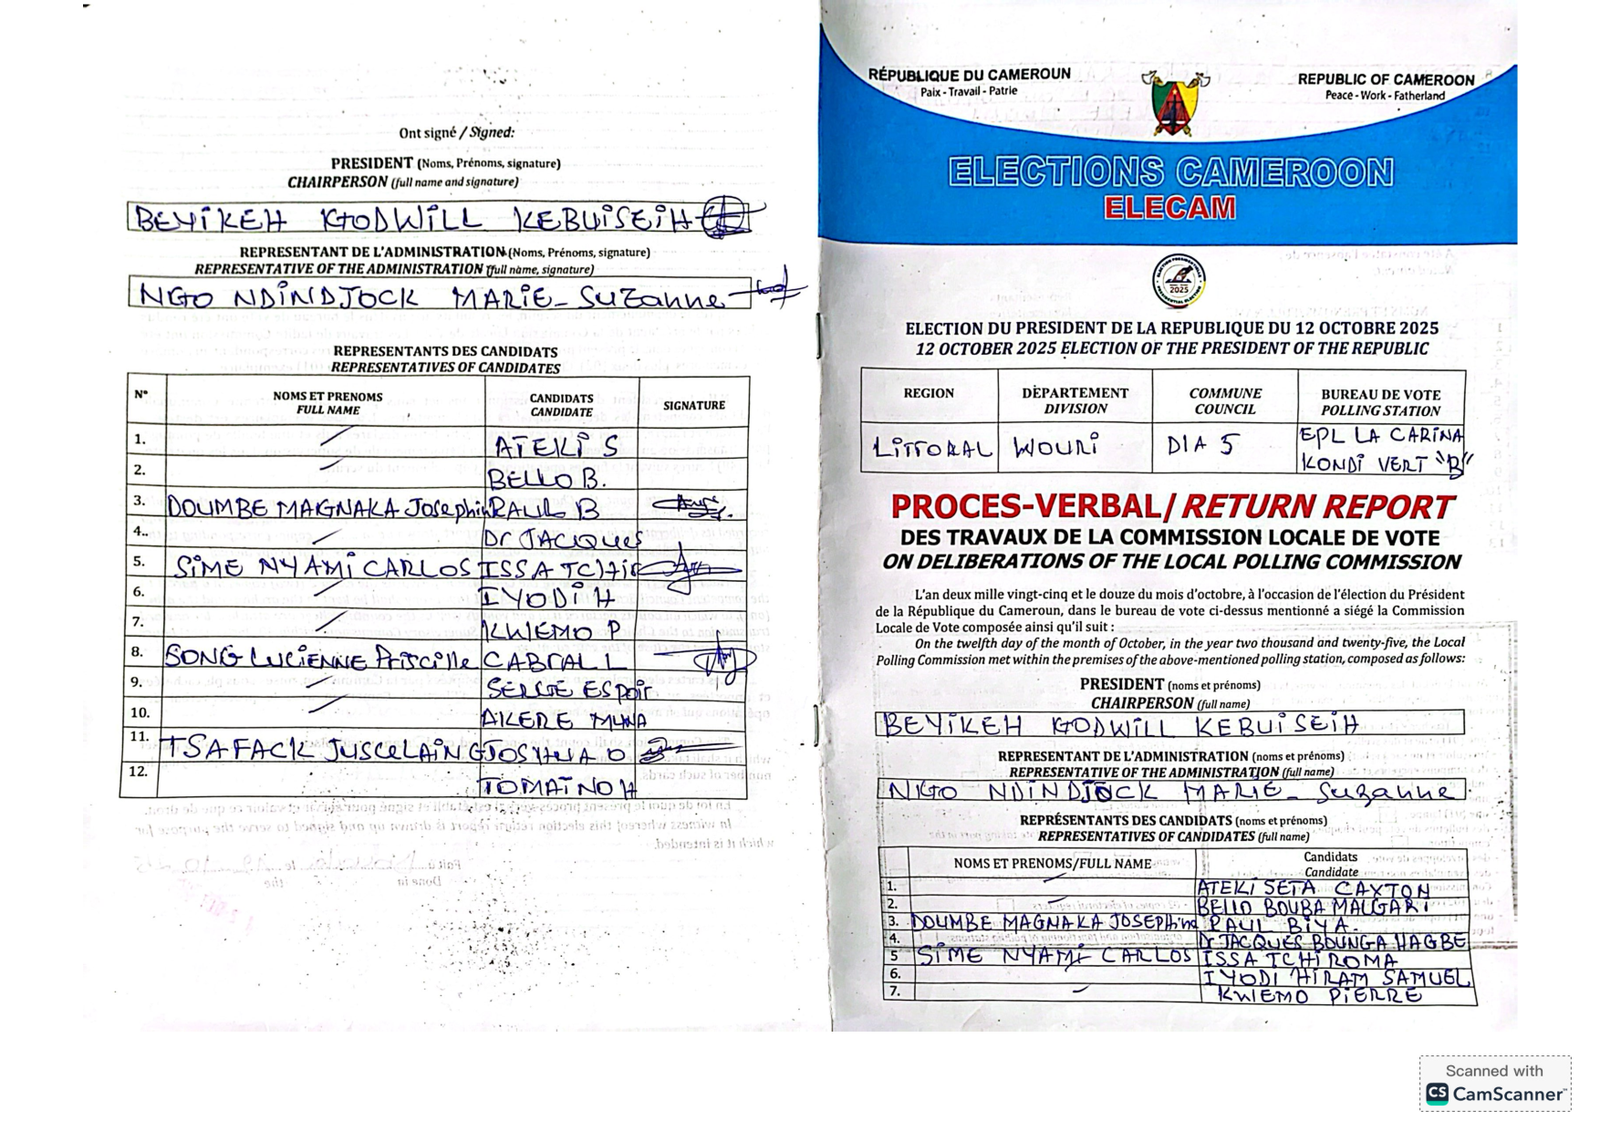 Ont signé / Signed:
PRESIDENT (Noms, Prénoms, signature)
CHAIRPERSON (full name and signature)
BEYIKEH GODWILL KEBUISEIH
REPRESENTANT DE L'ADMINISTRATION (Noms, Prénoms, signature)
REPRESENTATIVE OF THE ADMINISTRATION (full name, signature)
NGO NDINDJOCK MARIE-Suzanne
REPRESENTANTS DES CANDIDATS
REPRESENTATIVES OF CANDIDATES
N° NOMS ET PRENOMS FULL NAME CANDIDATS CANDIDATE SIGNATURE
1. ATEKI S
2. BELLO B.
3. DOUMBE MAGNAKA Josephine PAUL B
4.. Dr JACQUES
5. SIME NYAMI CARLOS ISSA TCHIR
6. IYODI H
7. KWEMO P
8. SONG LUCIENNE Priscille CABRAL L
9. SERGE ESPOIR
10. AKERE MUNA
11. TSAFACK JUSCELAIN G JOSHUA O
12. TOMAINO H
RÉPUBLIQUE DU CAMEROUN
Paix - Travail - Patrie
REPUBLIC OF CAMEROON
Peace - Work - Fatherland
ELECTIONS CAMEROON
ELECAM
2025
ELECTION DU PRESIDENT DE LA REPUBLIQUE DU 12 OCTOBRE 2025
12 OCTOBER 2025 ELECTION OF THE PRESIDENT OF THE REPUBLIC
REGION DÉPARTEMENT DIVISION COMMUNE COUNCIL BUREAU DE VOTE POLLING STATION
LITTORAL WOURI DIA 5 EPL LA CARINA KONDI VERT "B"
PROCES-VERBAL/ RETURN REPORT
DES TRAVAUX DE LA COMMISSION LOCALE DE VOTE
ON DELIBERATIONS OF THE LOCAL POLLING COMMISSION
L'an deux mille vingt-cinq et le douze du mois d'octobre, à l'occasion de l'élection du Président
de la République du Cameroun, dans le bureau de vote ci-dessus mentionné a siégé la Commission
Locale de Vote composée ainsi qu'il suit :
On the twelfth day of the month of October, in the year two thousand and twenty-five, the Local
Polling Commission met within the premises of the above-mentioned polling station, composed as follows:
PRESIDENT (noms et prénoms)
CHAIRPERSON (full name)
BEYIKEH GODWILL KEBUISEIH
REPRESENTANT DE L'ADMINISTRATION (noms et prénoms)
REPRESENTATIVE OF THE ADMINISTRATION (full name)
NGO NDINDJOCK MARIE-Suzanne
REPRÉSENTANTS DES CANDIDATS (noms et prénoms)
REPRESENTATIVES OF CANDIDATES (full name)
NOMS ET PRENOMS/FULL NAME Candidats Candidate
1. ATEKI SETA CAXTON
2. BELLO BOUBA MAIGARI
3. DOUMBE MAGNAKA JOSEPHINE PAUL BIYA.
4. Dr JACQUES BOUNGA HAGBE
5 SIME NYAMI CARLOS ISSA TCHIROMA
6. IYODI HIRAM SAMUEL
7. KWEMO PIERRE
Scanned with
CS CamScanner